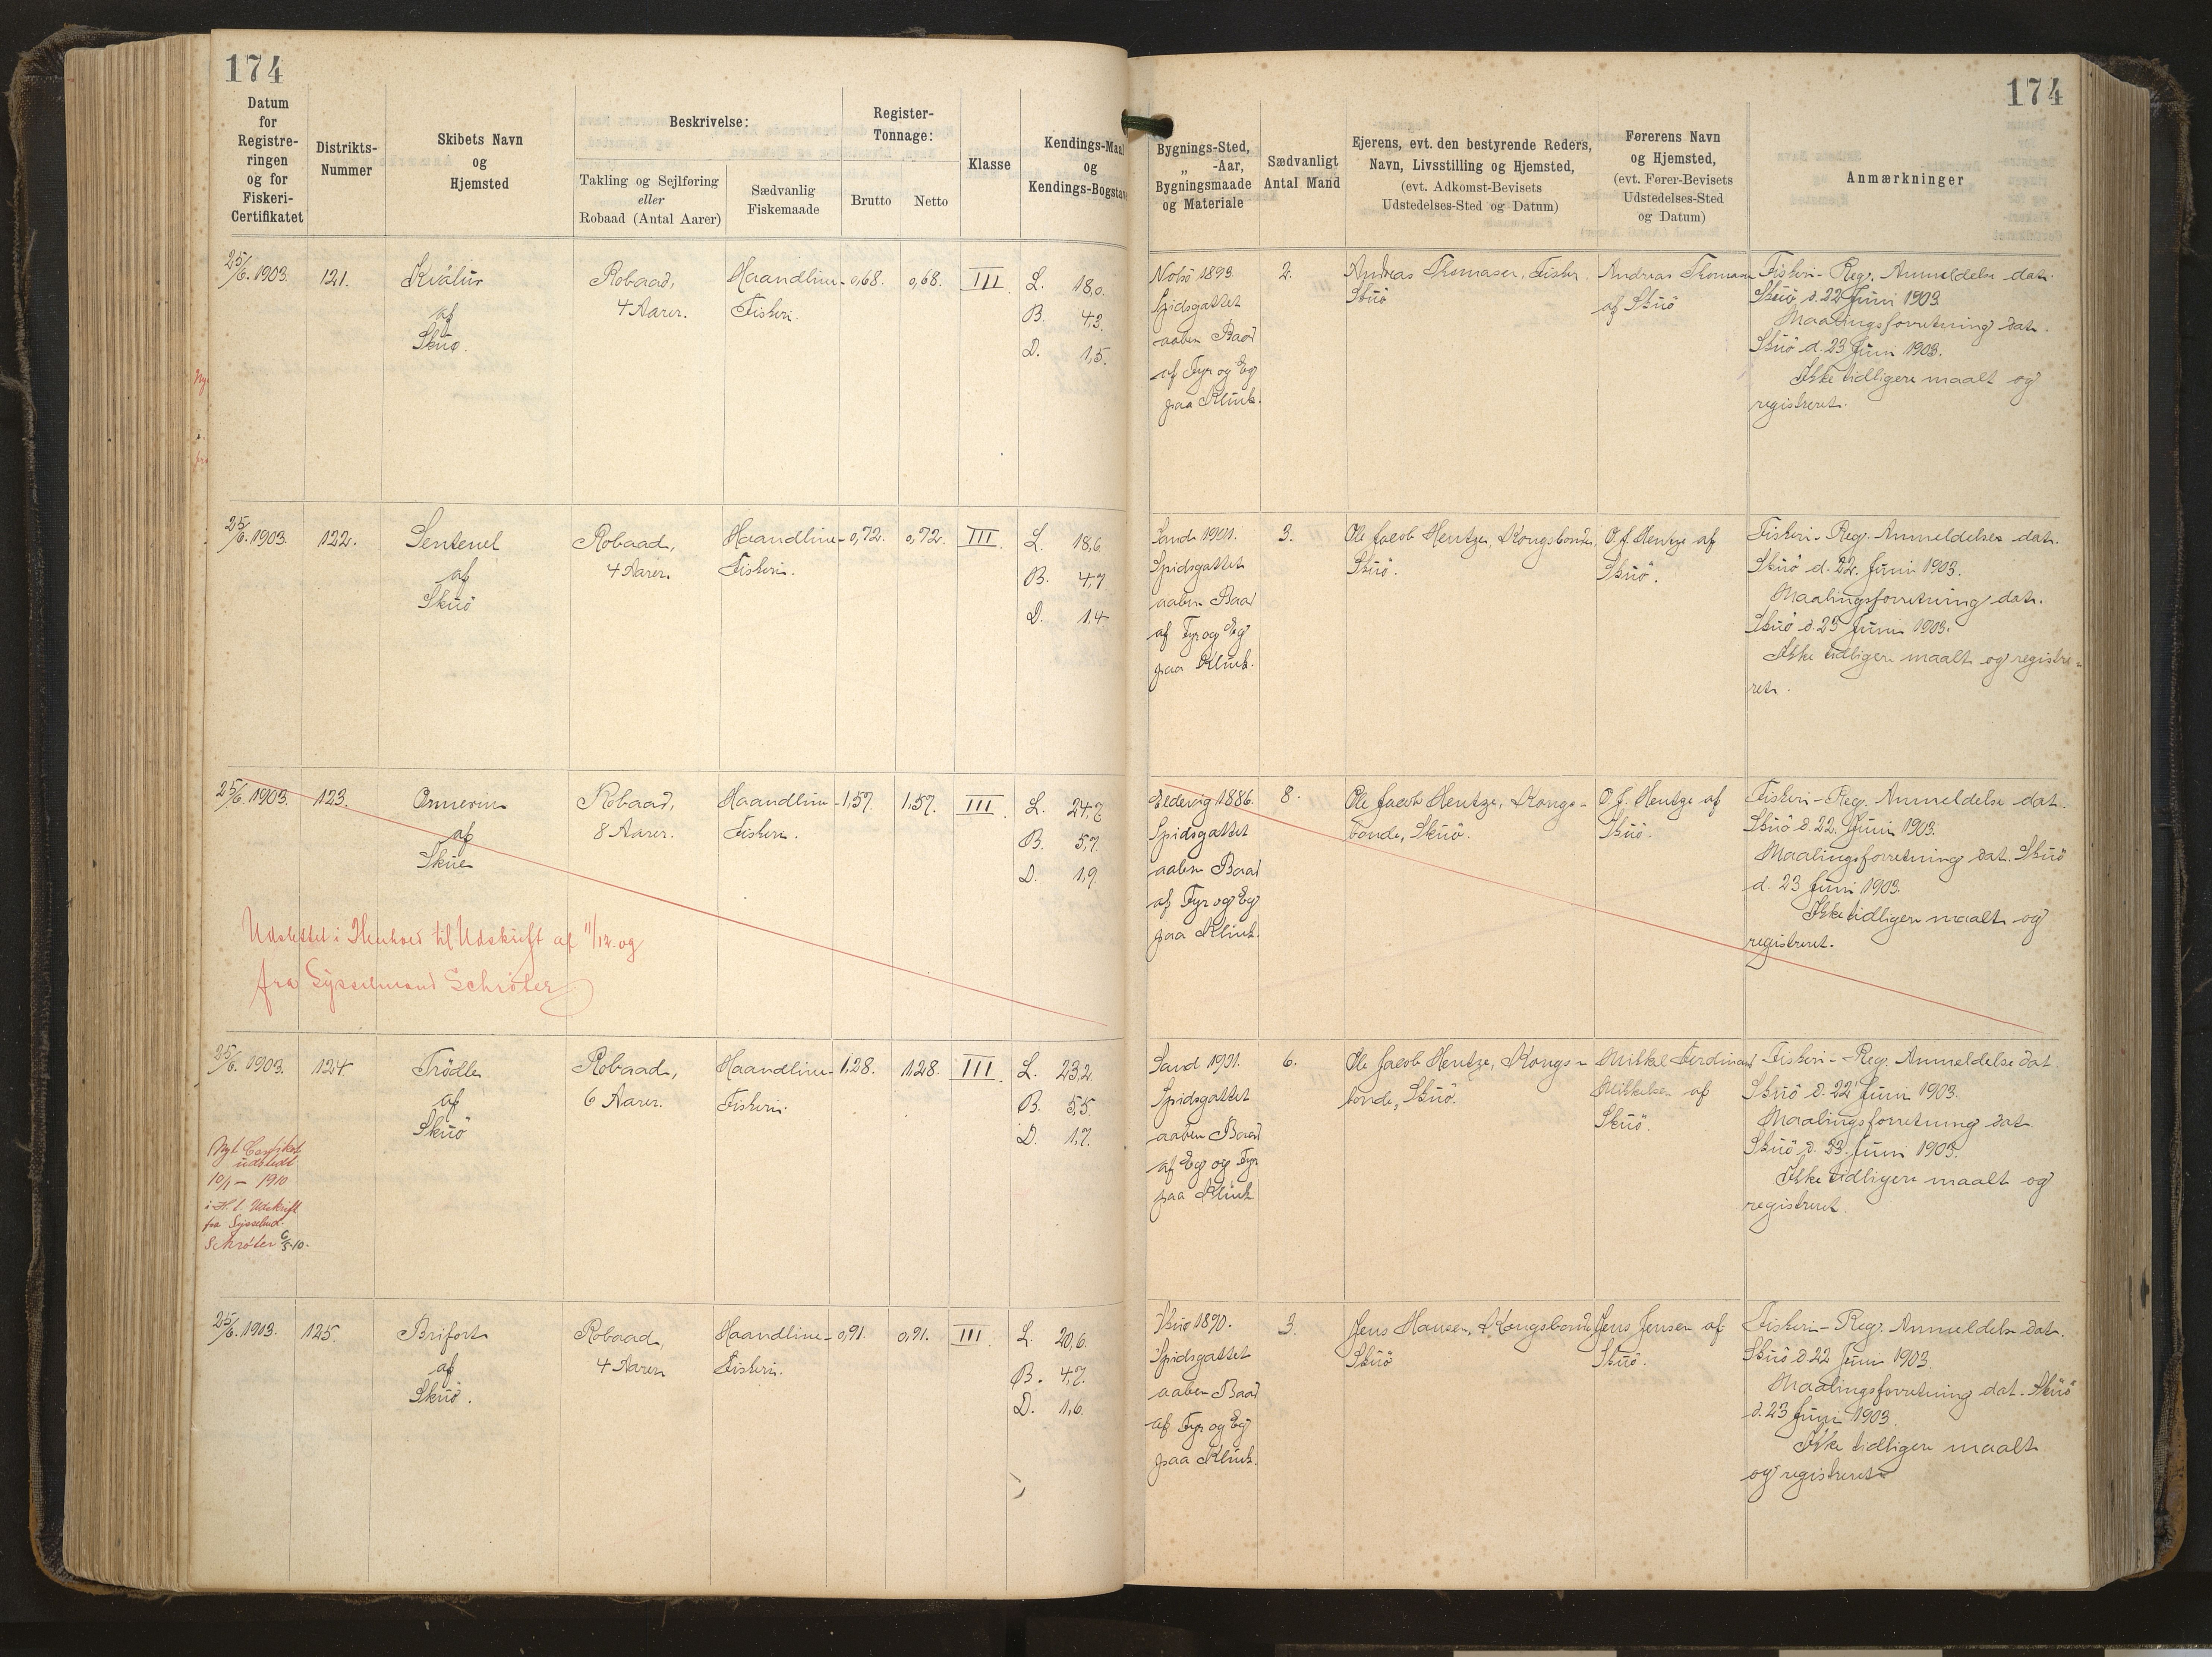 174
174
Datum
for
Registre-
ringen
og for
Fiskeri-
Certifikatet
Distrikts-
Nummer
Skibets Navn
og
Hjemsted
Beskrivelse:
Takling og Sejlføring
eller
Robaad (Antal Aarer)
Sædvanlig
Fiskemaade
Register-
Tonnage:
Brutto
Netto
Klasse
Kendings-Maal
og
Kendings-Bogstave
Bygnings-Sted,
„ -Aar,
Bygningsmaade
og Materiale
Sædvanligt
Antal Mand
Ejerens, evt. den bestyrende Reders,
Navn, Livsstilling og Hjemsted,
(evt. Adkomst-Bevisets
Udstedelses-Sted og Datum)
Førerens Navn
og Hjemsted,
(evt. Fører-Bevisets
Udstedelses-Sted
og Datum)
Anmærkninger
25/6. 1903.
121.
Kvälur
af
Skuø.
Robaad,
4 Aarer.
Haandline-
Fiskeri.
0,68.
0,68.
III.
L. 18,0.
B. 4,3.
D. 1,5.
Nolsö 1893.
Spidsgattet
aaben Baad
af Fyr og Eg
paa Klink.
2.
Andreas Thomasen, Fisker
Skuö
Andreas Thomasen
af Skuö
Fiskeri-Reg. Anmeldelse dat.
Skuö, d. 22 Juni 1903.
Maalingsforretning dat.
Skuö d. 23 Juni 1903.
Ikke tidligere maalt og
registreret.
25/6. 1903.
122.
Sentenel
af
Skuö
Robaad,
4 Aarer.
Haandline-
Fiskeri.
0,72.
0,72.
III.
L. 18,6
B. 4,7
D. 1,4.
Sand 1901.
Spidsgattet
aaben Baad
af Fyr og Eg
paa Klink.
3.
Ole Jacob Hentze, Kongsbonde,
Skuö.
O. J. Hentze af
Skuö.
Fiskeri-Reg. Anmeldelse dat.
Skuö d. 22. Juni 1903.
Maalingsforretning dat.
Skuö d. 23 Juni 1903.
Ikke tidligere maalt og registre-
ret.
25/6. 1903.
123.
Ormurin
af
Skue
Robaad,
8 Aarer.
Haandline-
Fiskeri.
1,57.
1,57.
III.
L. 24,7
B. 5,7.
D. 1,9.
Udslettet i Henhold til Udskrift af 11/12. og
fra Sysselmand Schröter
Eldevig 1886.
Spidsgattet
aaben Baad
af Fyr og Eg
paa Klink.
8.
Ole Jacob Hentze, Kongs-
bonde, Skuö.
O. J. Hentze af
Skuö.
Fiskeri-Reg. Anmeldelse dat.
Skuö d. 22. Juni 1903.
Maalingsforretning dat. Skuö
d. 23 Juni 1903.
Ikke tidligere maalt og
registreret.
25/6. 1903.
124
Trödle
af
Skuö
Robaad,
6 Aarer.
Haandline-
Fiskeri.
1,28.
1,28.
III.
L. 23,2.
B. 5,5.
D. 1,7.
Nyt Certifikat
udstedt
10/1 - 1910
i H. t. Udskrift
fra Sysselmd.
Schröter
Sand 1901.
Spidsgattet
aaben Baad
af Eg og Fyr
paa Klink
6.
Ole Jacob Hentze, Kongs-
bonde, Skuö.
Mikkel Ferdinand
Mikkelsen af
Skuö.
Fiskeri-Reg. Anmeldelse dat.
Skuö d. 22 Juni 1903.
Maalingsforretning dat.
Skuö d. 23. Juni 1903.
Ikke tidligere maalt og
registreret.
25/6. 1903.
125.
Brifort
af
Skuö.
Robaad,
4 Aarer
Haandline-
Fiskeri.
0,91.
0,91.
III.
L. 20,6.
B. 4,7.
D. 1,6.
Skuö 1890.
Spidsgattet
aaben Baad
af Fyr og Eg
paa Klink.
3.
Jens Hansen, Kongsbonde
Skuö
Jens Jensen af
Skuö.
Fiskeri-Reg. Anmeldelse dat.
Skuö d. 22 Juni 1903.
Maalingsforretning dat. Skuö
d. 23 Juni 1903.
Ikke tidligere maalt
og registreret.